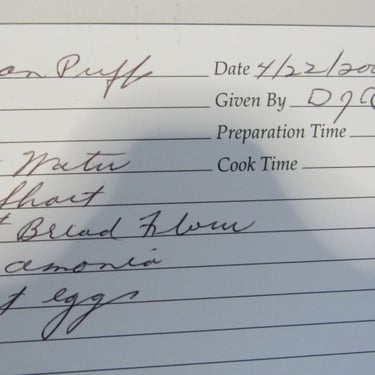 Puff Date 4/22/200
Given By DJ
Preparation Time
Water Cook Time
Short
Bread Flour
amonia
eggs